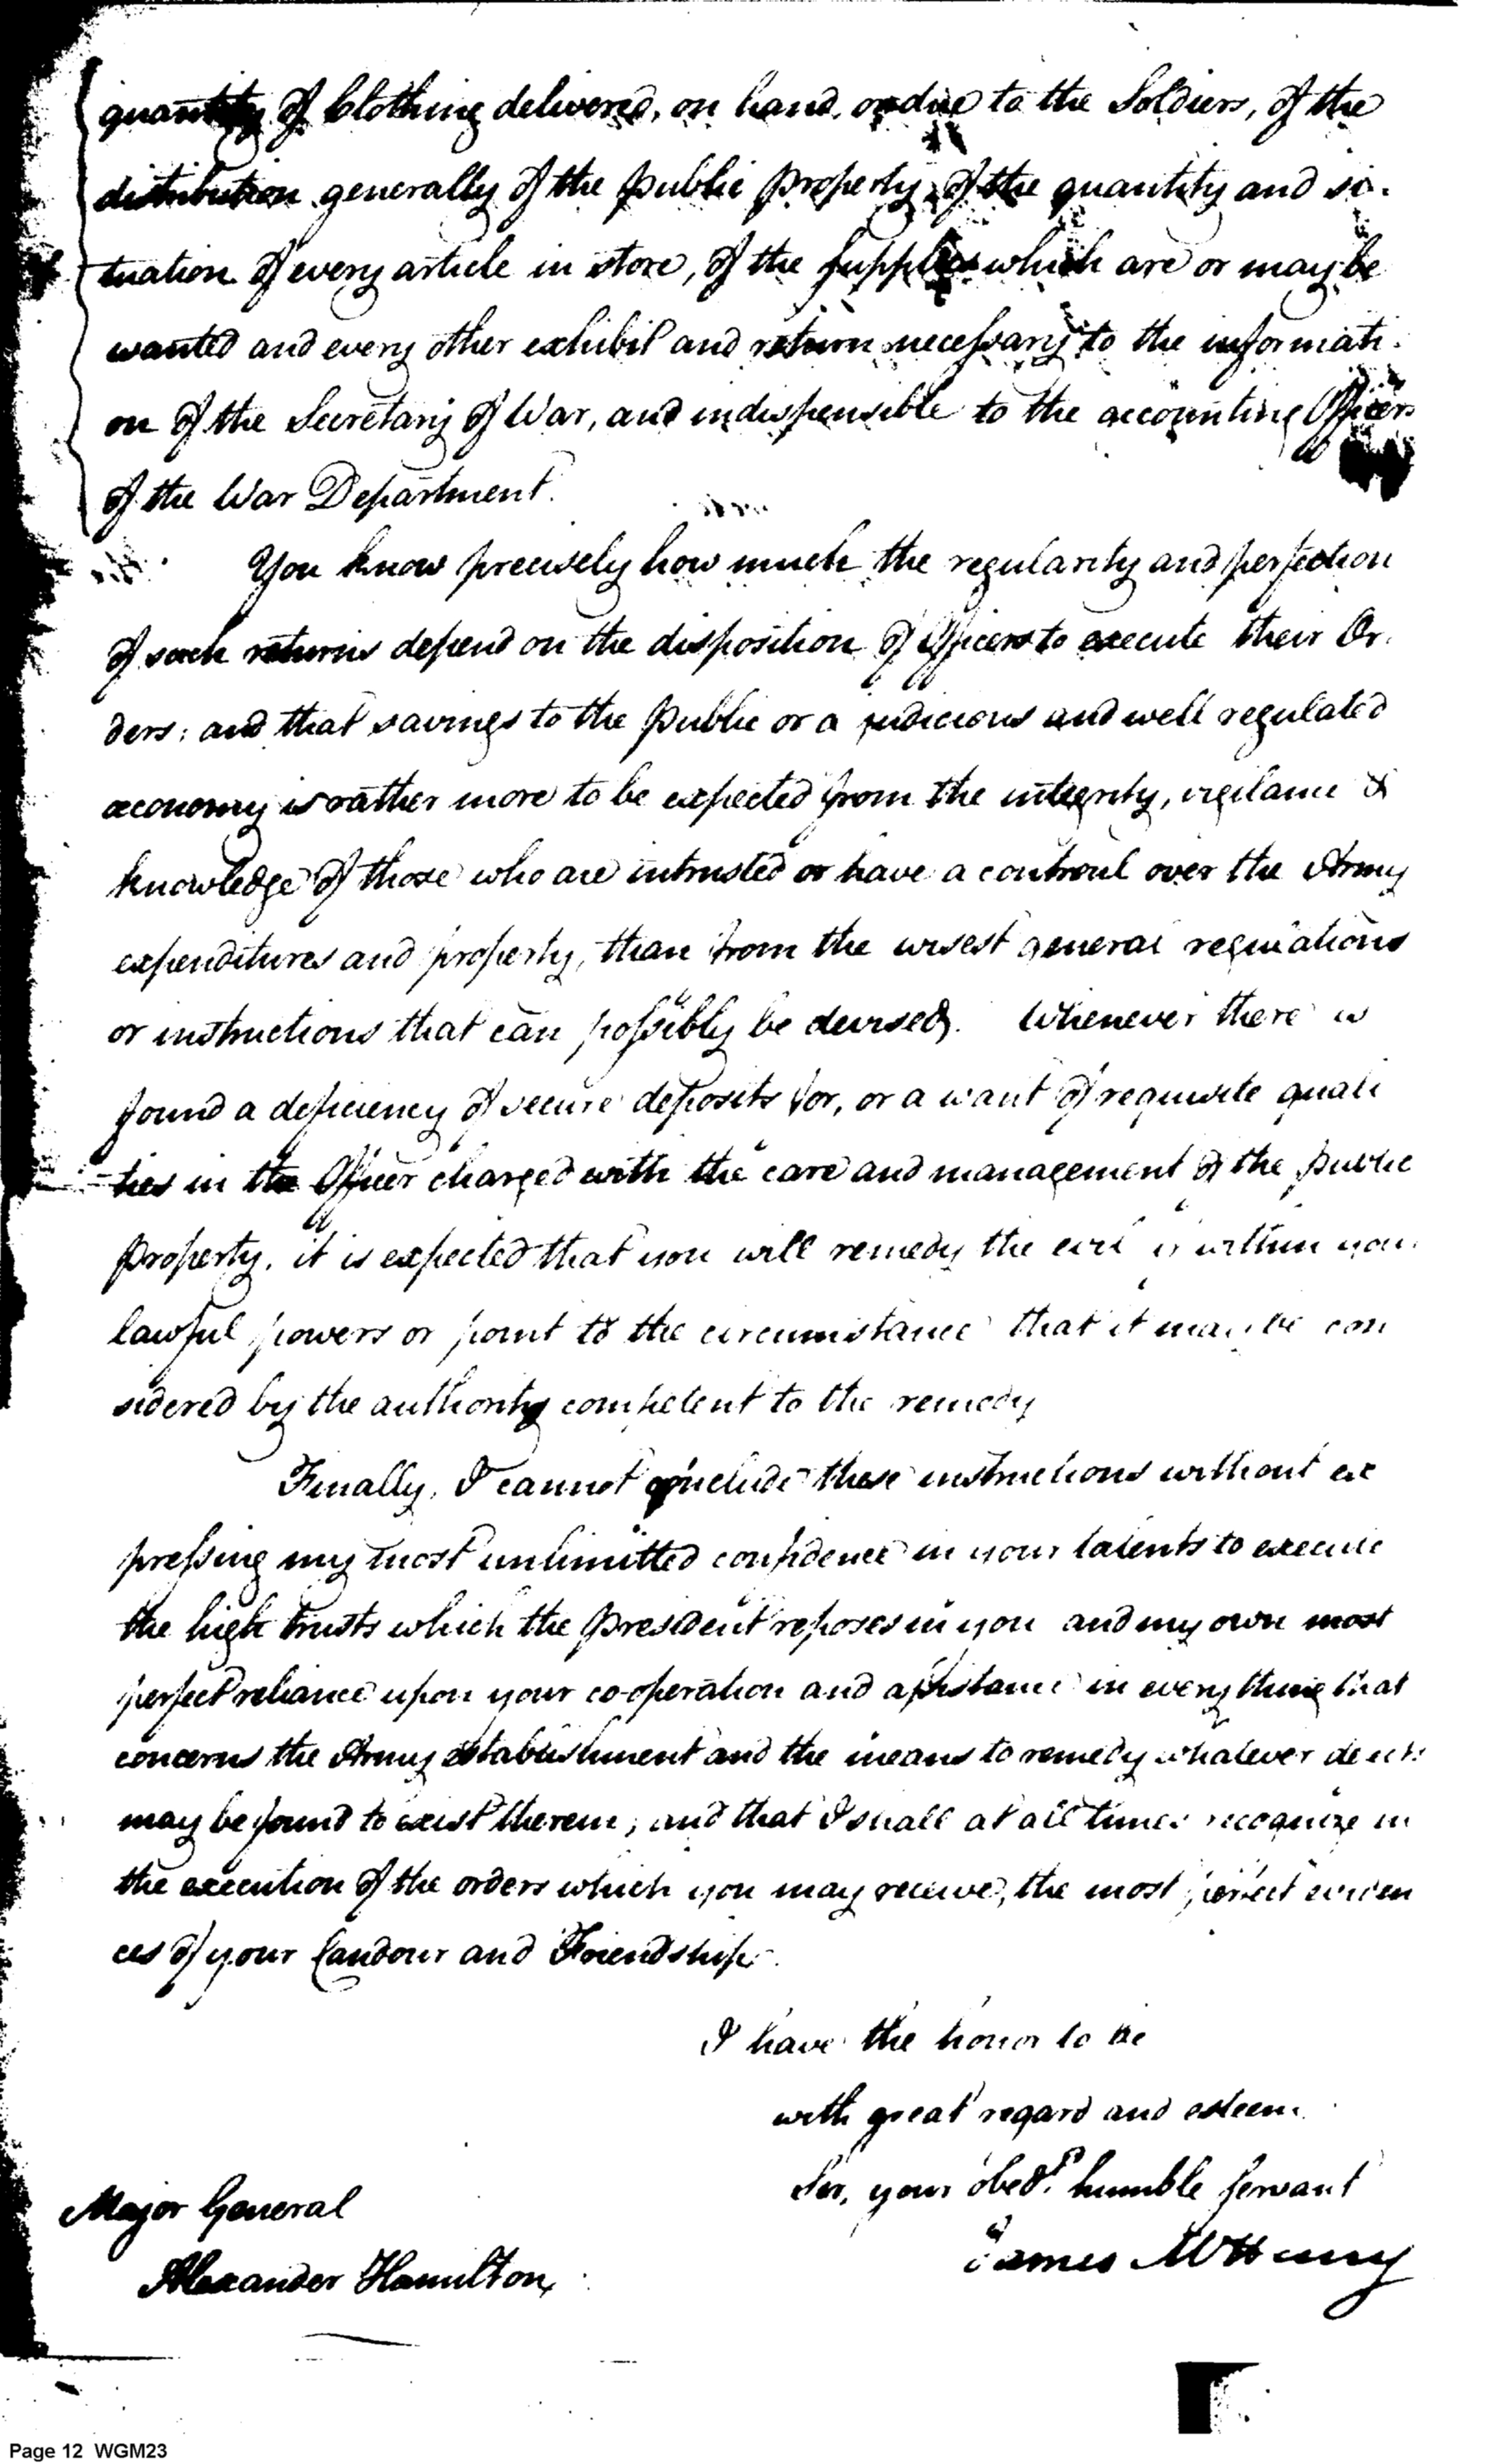 quantity of Clothing delivered, on hand, or due to the Soldiers, of the
distribution generally of the public property, of the quantity and si-
tuation of every article in store, of the supplies which are or may be
wanted and every other exhibit and return necessary to the informati-
on of the Secretary of War, and indispensible to the accounting Officers
of the War Department.
You know precisely how much the regularity and perfection
of such returns depend on the disposition of Officers to execute their Or-
ders; and that savings to the public or a judicious and well regulated
œconomy is rather more to be expected from the integrity, vigilance &
knowledge of those who are intrusted or have a controul over the Army
expenditures and property, than from the wisest general regulations
or instructions that can possibly be devised. Whenever there is
found a deficiency of secure deposits for, or a want of requisite quali
ties in the Officer charged with the care and management of the public
property, it is expected that you will remedy the evil if within your
lawful powers or point to the circumstance that it may be con
sidered by the authority competent to the remedy
Finally, I cannot conclude these instructions without ex
pressing my most unlimitted confidence in your talents to execute
the high trusts which the President reposes in you and my own most
perfect reliance upon your co-operation and assistance in every thing that
concerns the Army establishment and the means to remedy whatever defects
may be found to exist therein; and that I shall at all times recognize in
the execution of the orders which you may receive, the most perfect eviden
ces of your Candour and Friendship.
I have the honor to be
with great regard and esteem
Sir, your obedt. humble servant
James McHenry
Major General
Alexander Hamilton
Page 12 WGM23